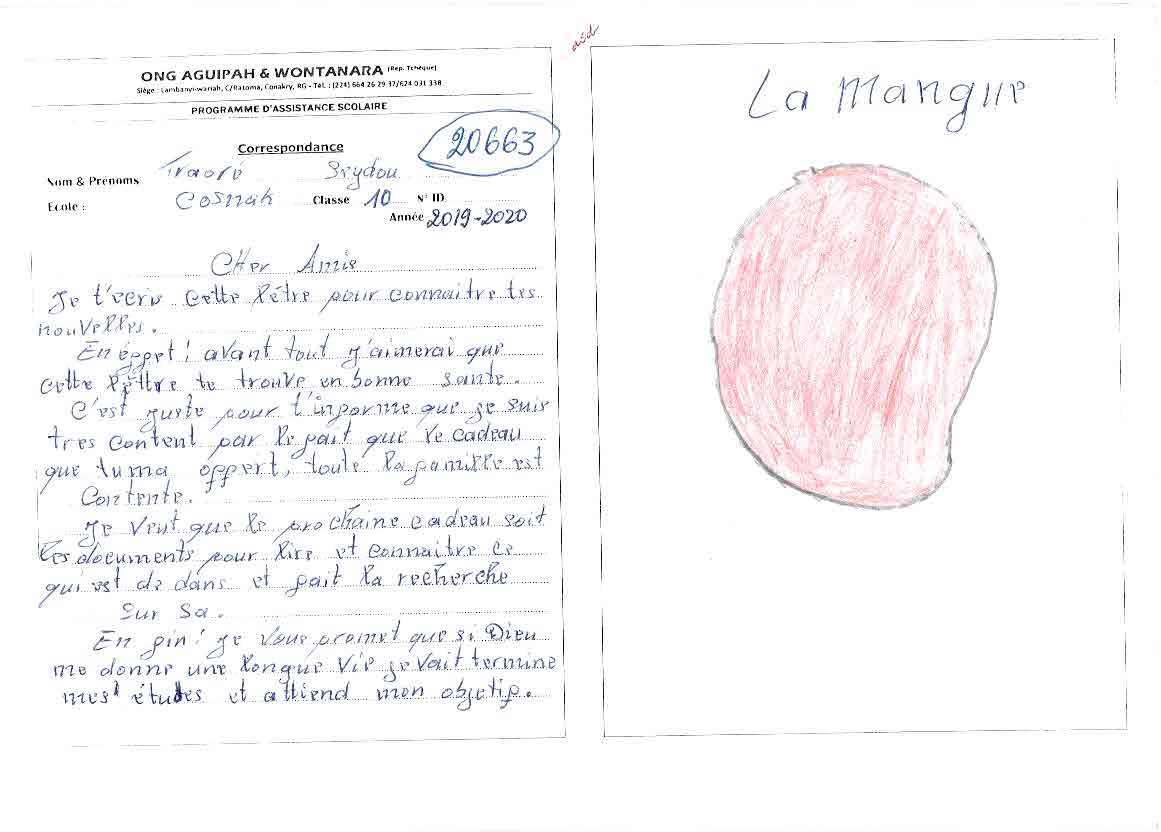 ONG AGUIPAH & WONTANARA (Rep. Tchèque)
Siège : Lambanyi-wariah, C/Ratoma, Conakry, RG - Tél. : (224) 664 26 29 37/624 031 338
PROGRAMME D'ASSISTANCE SCOLAIRE
20663
Correspondance
Nom & Prénoms Traoré Srydou
Ecole : Cosnak Classe 10 N° ID
Année 2019-2020
CHer Amis
Je t'ecris cette lêtre pour connaitre tes
nouvelles.
En éppet ! avant tout j'aimerai que
cette lêttre te trouve en bonne sante.
C'est juste pour t'inporme que je suis
tres content par le pait que le cadeau
que tu ma oppert, toute la pamille est
Contente.
Je Veut que le prochaine cadeau soit
les documents pour lire et connaitre ce
qui est de dans et pait la recherche
Sur Sa.
En pin ! je Vous promet que si Dieu
me donne une longue Vie je vait termine
mes études et attiend mon objetip.
La Mangue